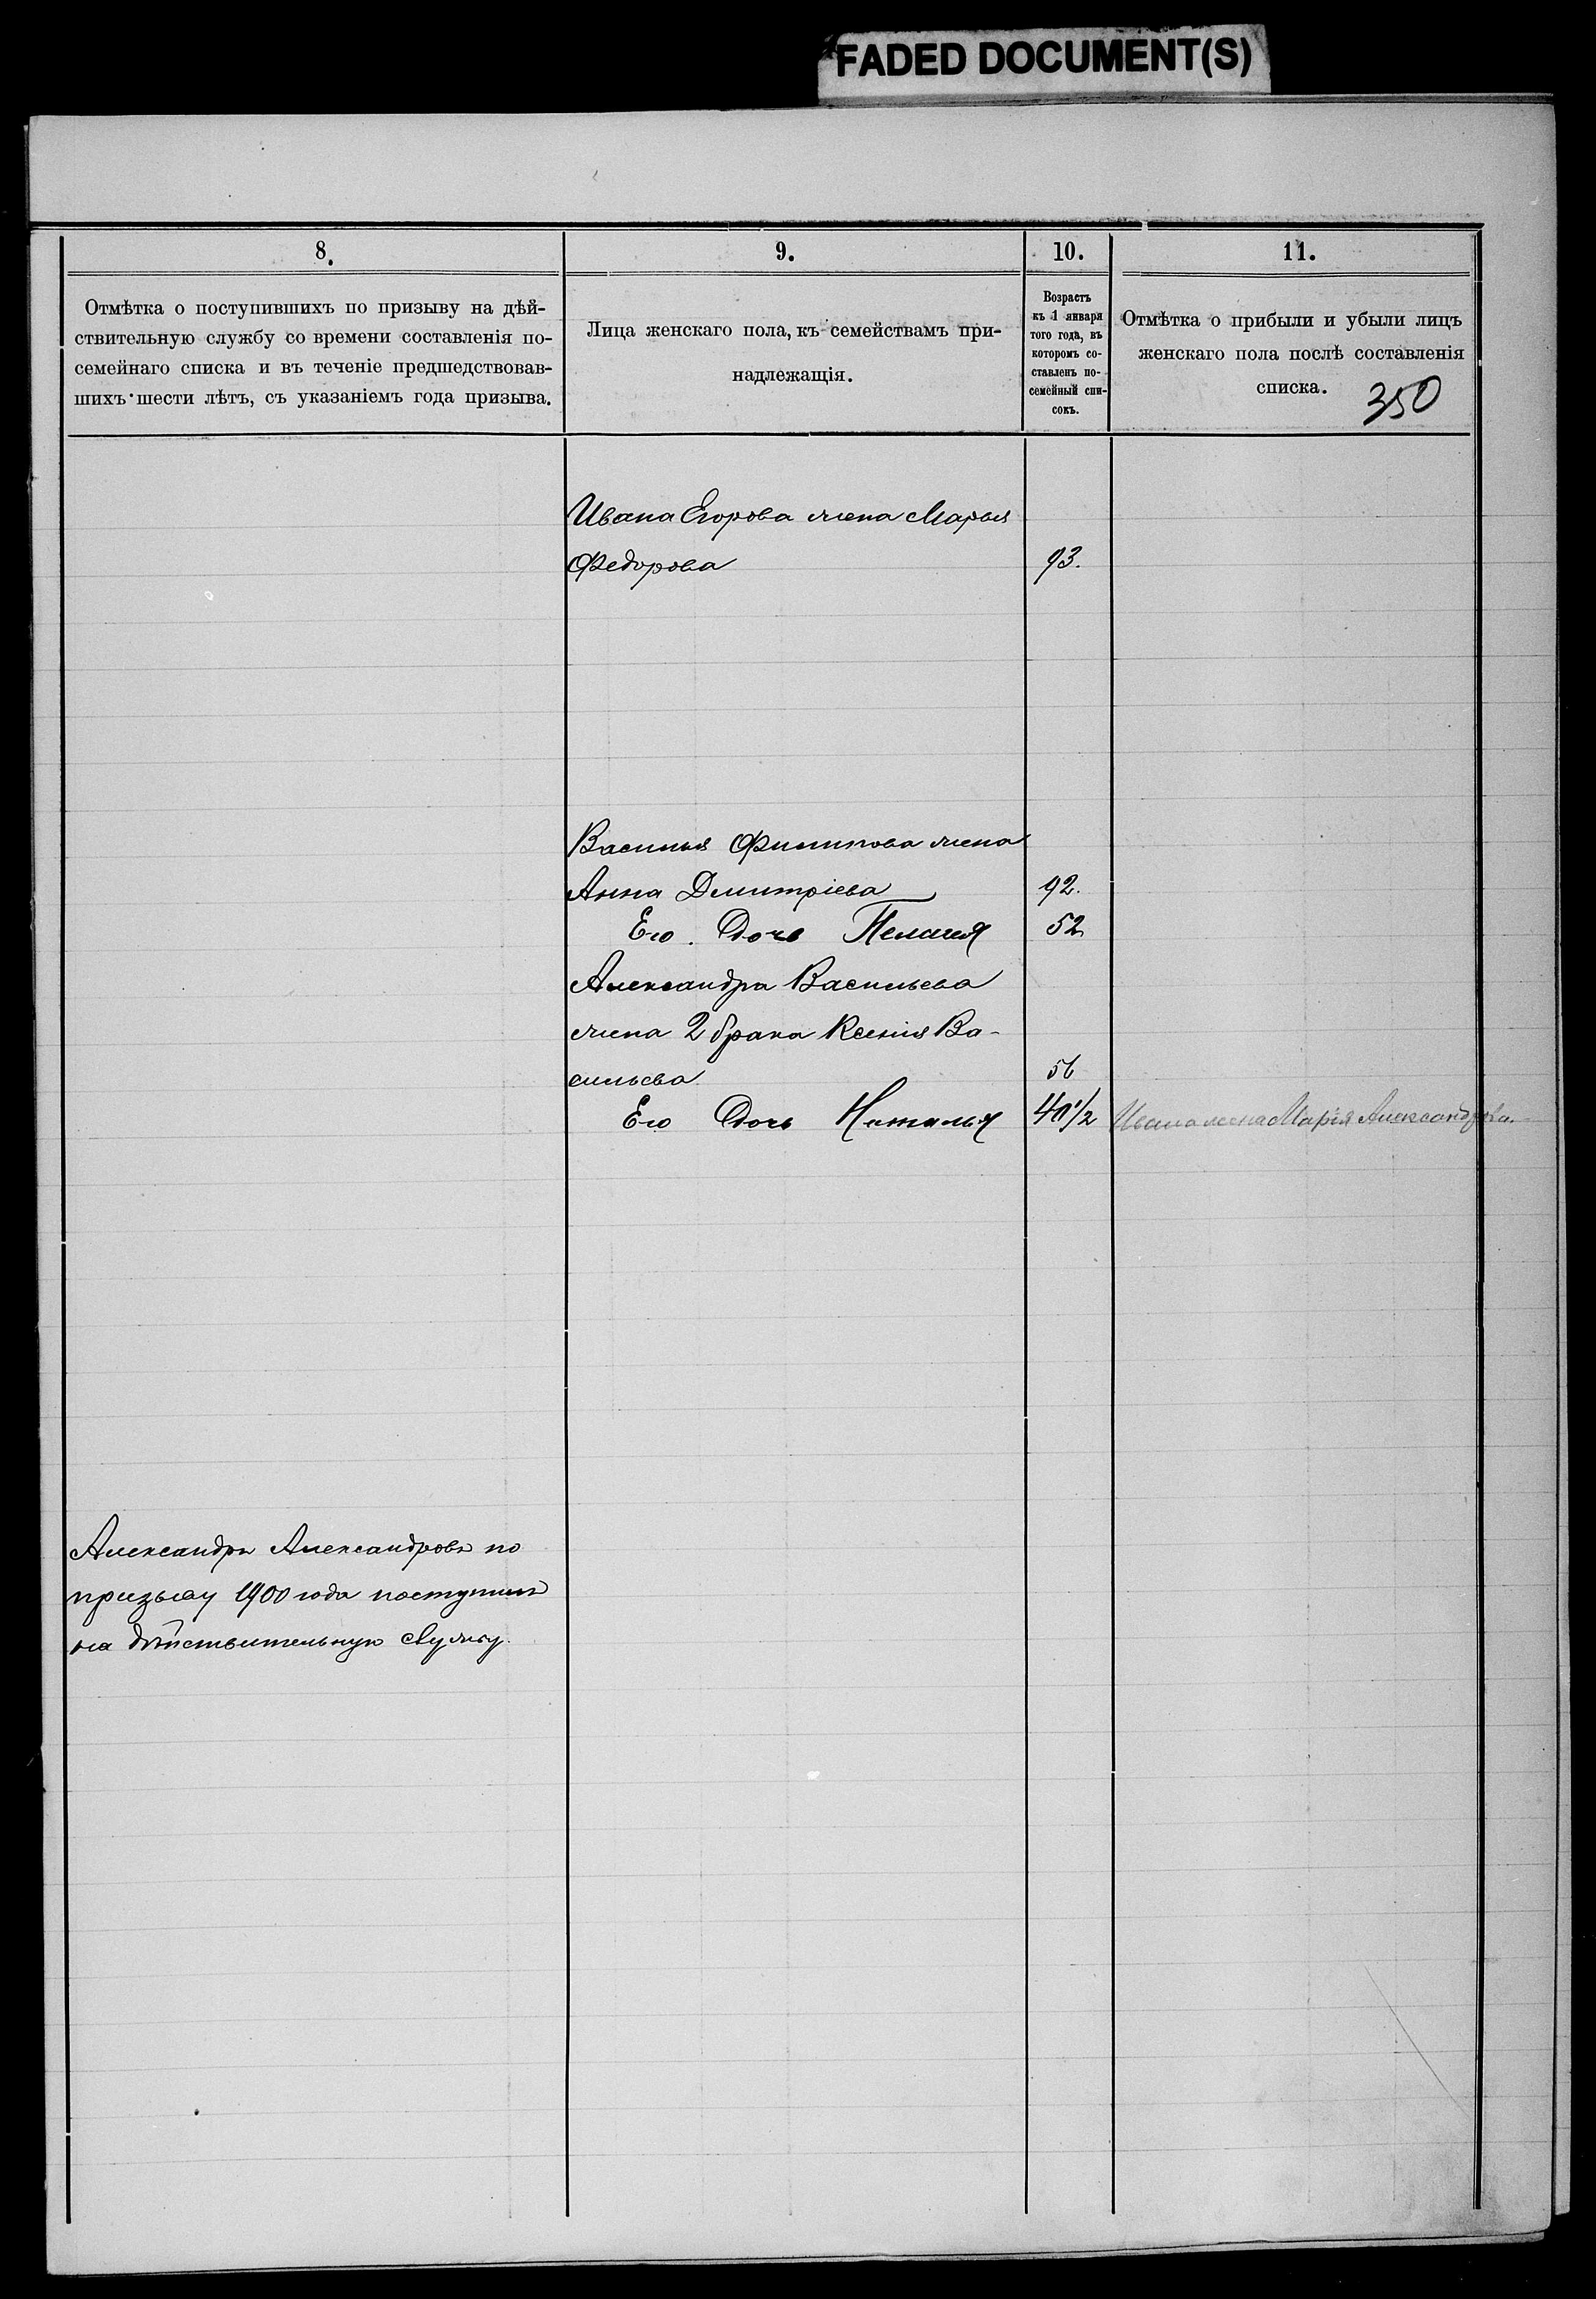 FADED DOCUMENT(S)
8.
9.
10.
11.
Отмѣтка о поступившихъ по призыву на дѣй-
ствительную службу со времени составленія по-
семейнаго списка и въ теченіе предшедствовав-
шихъ шести лѣтъ, съ указаніемъ года призыва.
Лица женскаго пола, къ семействамъ при-
надлежащія.
Возрастъ
къ 1 января
того года, въ
которомъ со-
ставленъ по-
семейный спи-
сокъ.
Отмѣтка о прибыли и убыли лицъ
женскаго пола послѣ составленія
списка.
350
Ивана Егорова жена Марья
Федорова 93.
Василья Филипова жена
Анна Дмитріева 92.
Его Дочь Пелагея 52
Александра Васильева
жена 2 брака Ксенія Ва-
сильева 56
Его Дочь Наталья 40 1/2 Ивана жена Марія Александрова.
Александръ Александровъ по
призыву 1900 года поступилъ
на дѣйствительную службу.